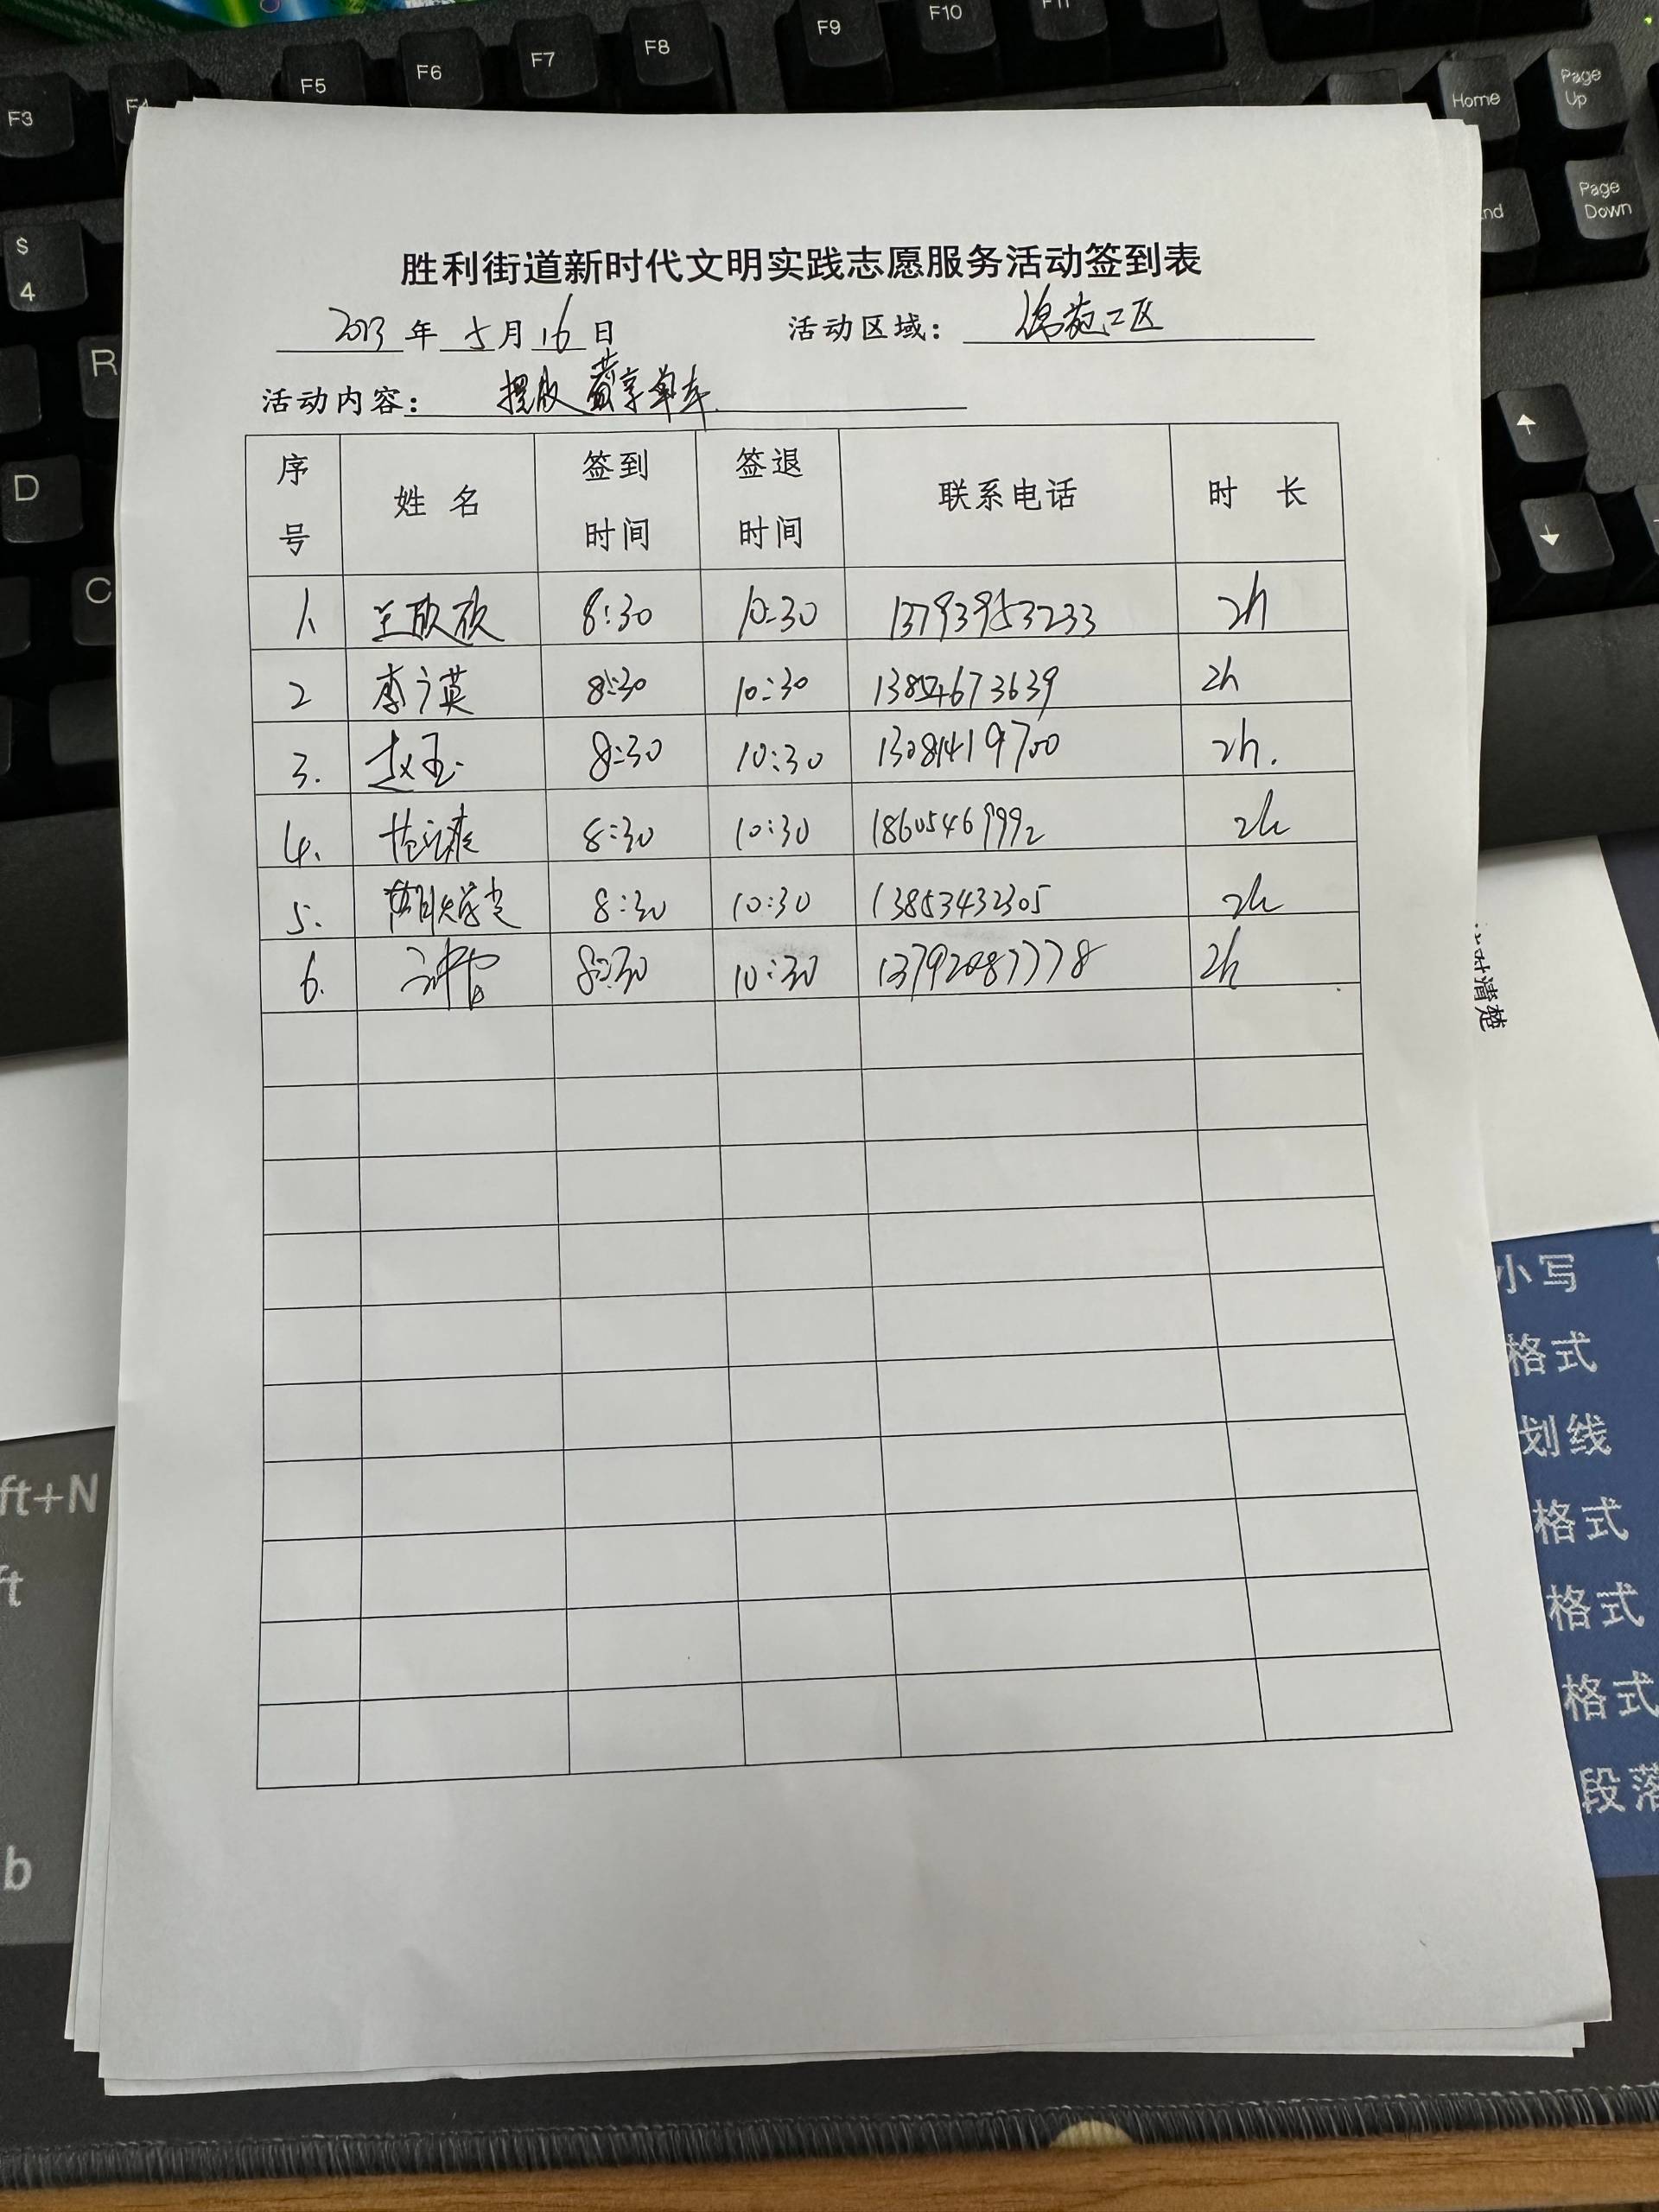 F3
F4
F5
F6
F7
F8
F9
F10
F11
Home
Page Up
Page Down
S
4
R
D
C
胜利街道新时代文明实践志愿服务活动签到表
2023年5月16日 活动区域：锦苑二区
活动内容：摆放共享单车
序号 姓名 签到时间 签退时间 联系电话 时长
1、 8:30 10:30 13793953233 2h
2 李广英 8:30 10:30 13854673639 2h
3. 赵玉 8:30 10:30 13081419700 2h.
4. 8:30 10:30 18605469992 2h
5. 8:30 10:30 13853432305 2h
6. 8:30 10:30 13792087778 2h
时清楚
小写
格式
划线
格式
格式
格式
段落
ft+N
ft
b